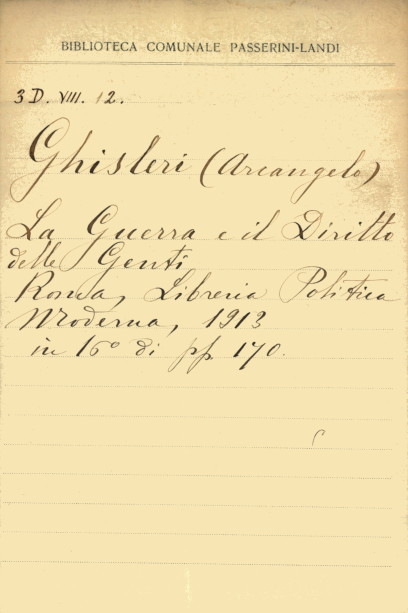 BIBLIOTECA COMUNALE PASSERINI-LANDI
3 D. VIII. 12.
Ghisleri (Arcangelo)
La Guerra e il Diritto
delle Genti
Roma, Libreria Politica
Moderna, 1913
in 16° di pp. 170.